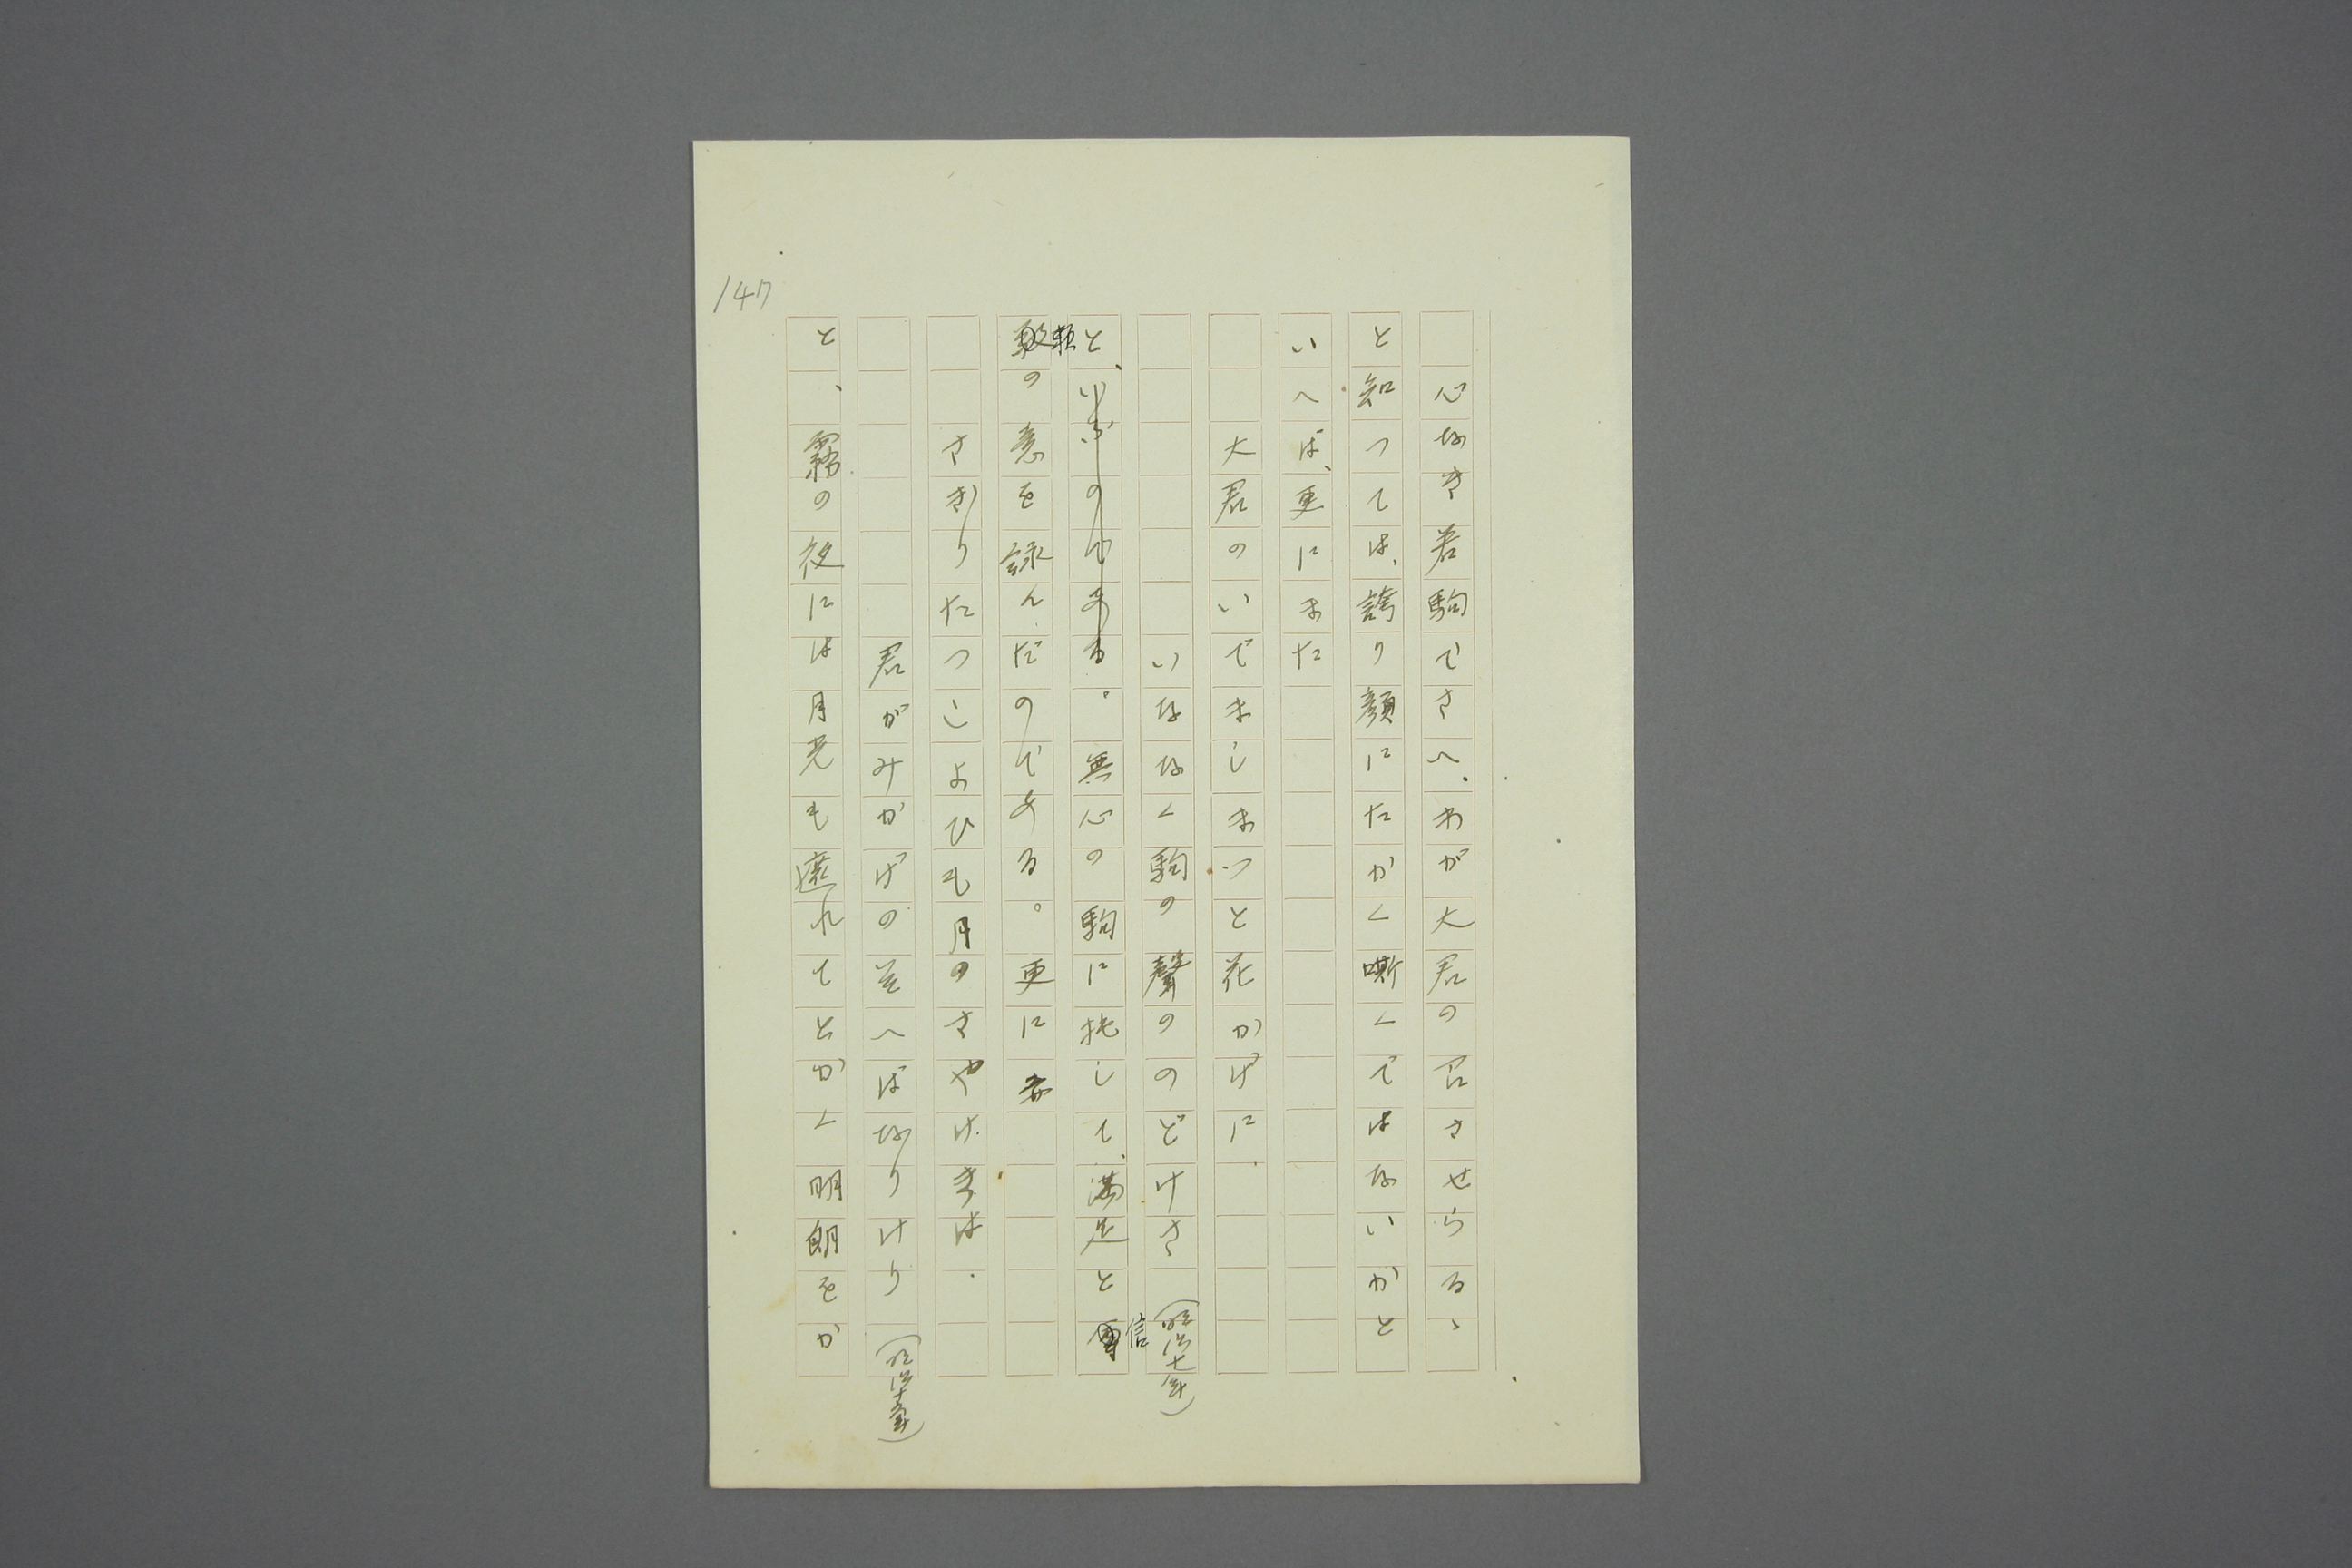 心なき若駒でさへ、わが大君の召させらるゝ
と知つては、誇り顔にたかく嘶くではないかと
いへば、更にまた
大君のいでましまつと花かげに
いななく駒の聲ののどけさ（明治十年）
と、いふのである。無心の駒に托して、満足と信
頼の意を詠んだのである。更に亦
さぎりたつこよひも月のさやけきは
君がみかげのそへばなりけり（明治十一年）
と、霧の夜には月光も遮れてとかく明朗をか
147